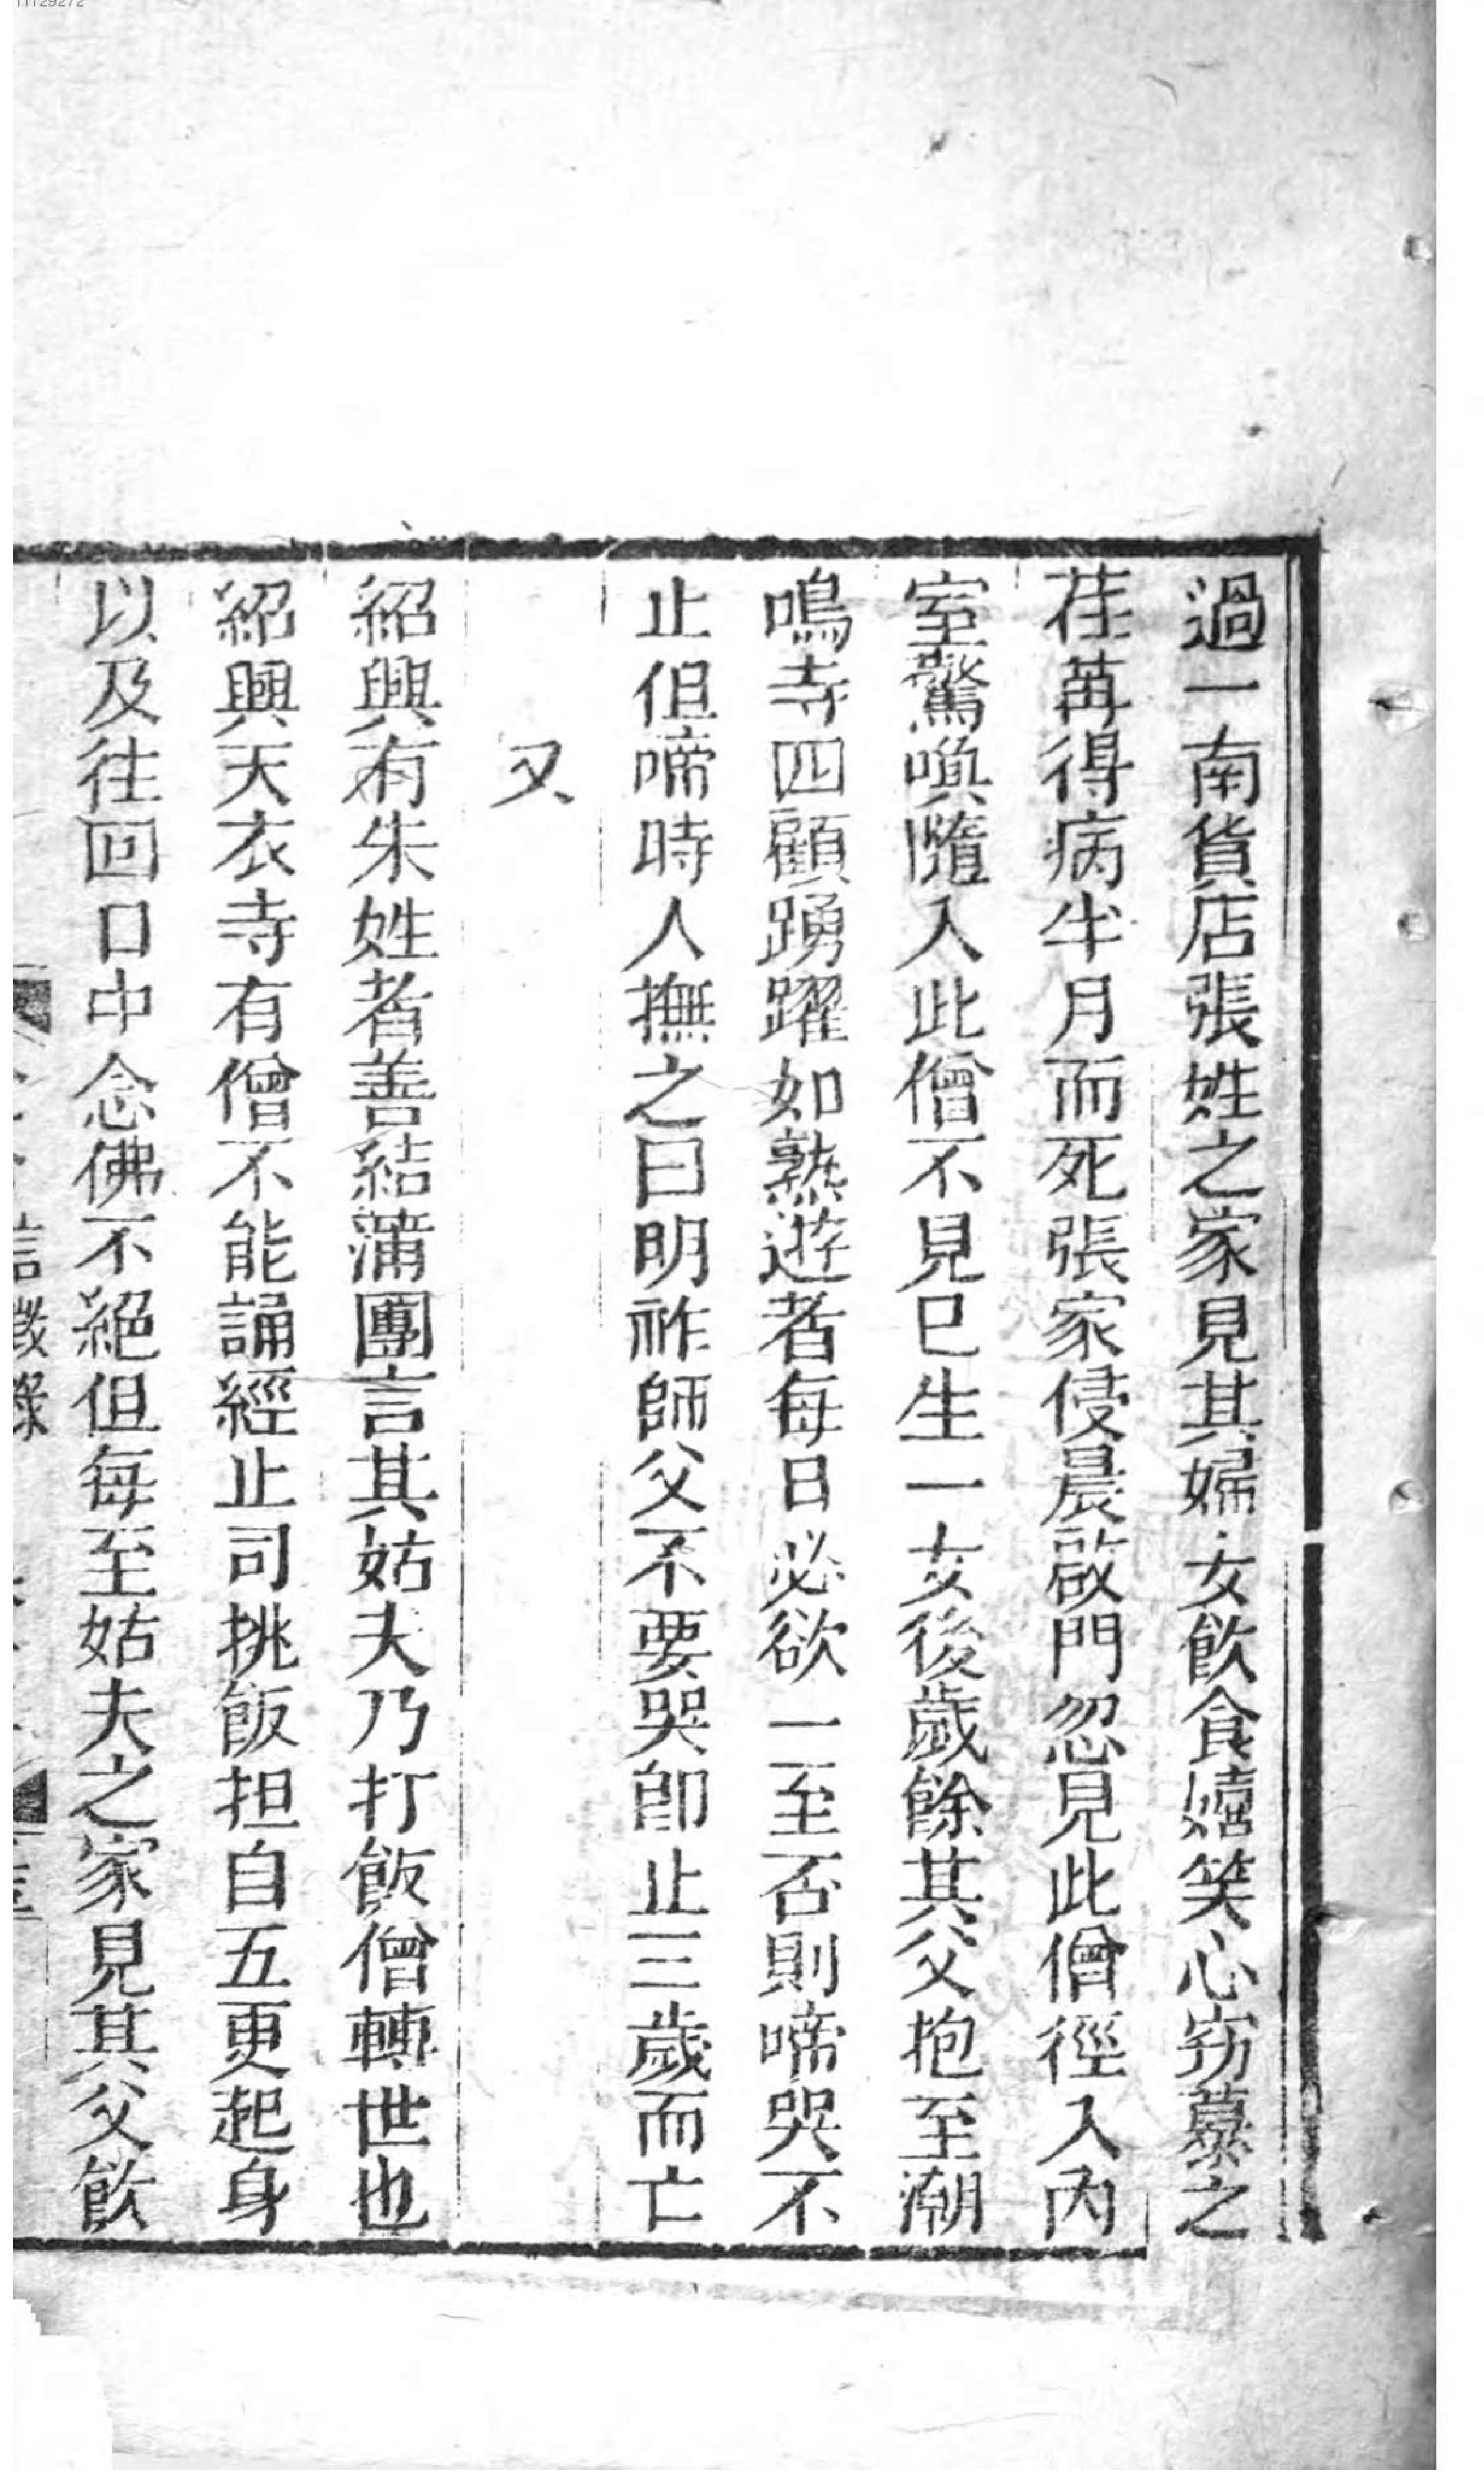 11129272
過一南貨店張姓之家見其婦女飲食嬉笑心窃慕之
荏苒得病半月而死張家侵晨啟門忽見此僧徑入內
室驚喚隨入此僧不見巳生一女後歲餘其父抱至潮
鳴寺四顧踴躍如熟遊者每日必欲一至否則啼哭不
止但啼時人撫之曰明祚師父不要哭卽止三歲而亡
又
紹興有朱姓者善結蒲團言其姑夫乃打飯僧轉世也
紹興天衣寺有僧不能誦經止司挑飯担自五更起身
以及往回口中念佛不絕但每至姑夫之家見其父飲
信徵錄